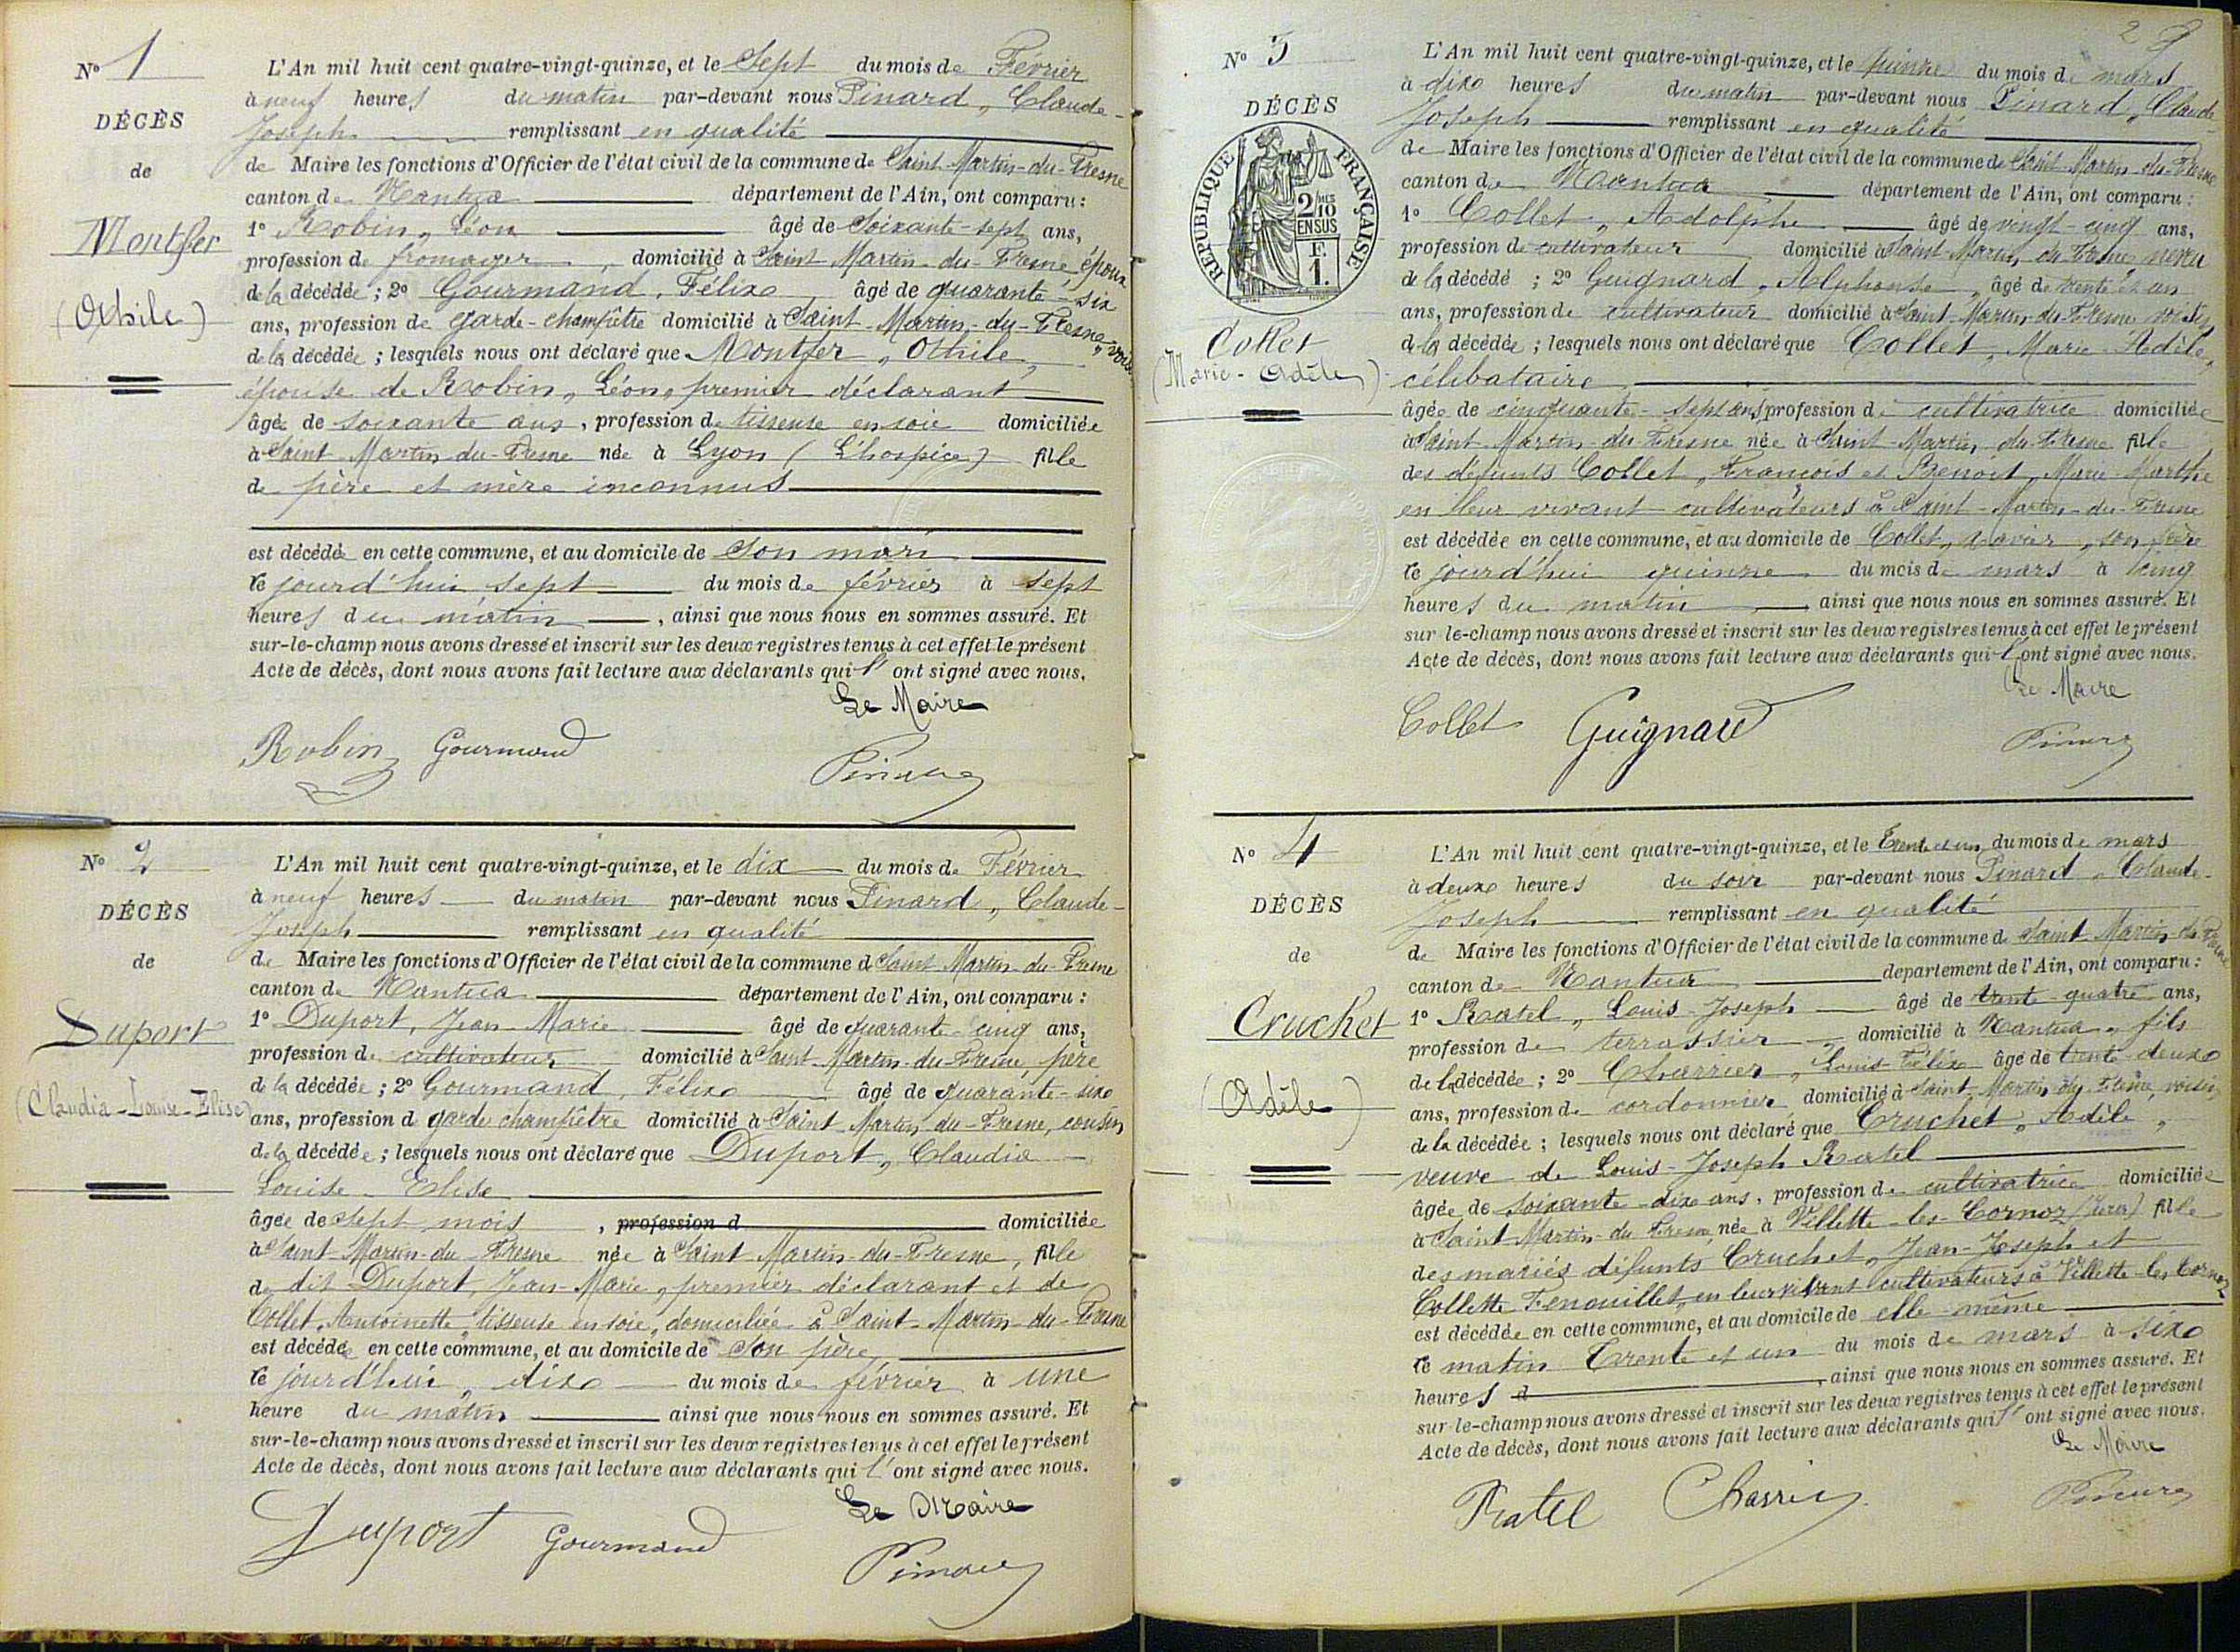 N° 1
DÉCÈS
de
Montfer
(Othile)
L'An mil huit cent quatre-vingt-quinze, et le Sept du mois de Février
à neuf heures du matin par-devant nous Pinard, Claude-
Joseph remplissant en qualité
de Maire les fonctions d'Officier de l'état civil de la commune de Saint-Martin-du-Fresne
canton de Nantua département de l'Ain, ont comparu :
1° Robin, Léon âgé de Soixante-sept ans,
profession de fromager, domicilié à Saint-Martin-du-Fresne époux
de la décédée ; 2° Gourmand, Félix âgé de quarante-six
ans, profession de garde-champêtre domicilié à Saint-Martin-du-Fresne, voisin
de la décédée ; lesquels nous ont déclaré que Montfer, Othile,
épouse de Robin, Léon, premier déclarant
âgée de soixante ans, profession de tisseuse en soie domiciliée
à Saint-Martin-du-Fresne née à Lyon (L'hospice) fille
de père et mère inconnus
est décédée en cette commune, et au domicile de son mari
ce jourd'hui sept du mois de février à sept
heures du matin, ainsi que nous nous en sommes assuré. Et
sur-le-champ nous avons dressé et inscrit sur les deux registres tenus à cet effet le présent
Acte de décès, dont nous avons fait lecture aux déclarants qui l'ont signé avec nous.
Le Maire
Robin Gourmand Pinard
N° 2
DÉCÈS
de
Duport
(Claudia-Louise-Elise)
L'An mil huit cent quatre-vingt-quinze, et le dix du mois de Février
à neuf heures du matin par-devant nous Pinard, Claude-
Joseph remplissant en qualité
de Maire les fonctions d'Officier de l'état civil de la commune de Saint-Martin-du-Fresne
canton de Nantua département de l'Ain, ont comparu :
1° Duport, Jean-Marie âgé de quarante-cinq ans,
profession de cultivateur domicilié à Saint-Martin-du-Fresne, père
de la décédée ; 2° Gourmand, Félix âgé de quarante-six
ans, profession d garde champêtre domicilié à Saint-Martin-du-Fresne, cousin
de la décédée ; lesquels nous ont déclaré que Duport, Claudia
Louise-Elise
âgée de sept mois, profession d domiciliée
à Saint-Martin-du-Fresne née à Saint-Martin-du-Fresne, fille
de dit Duport, Jean-Marie, premier déclarant et de
Collet, Antoinette, tisseuse en soie, domiciliée à Saint-Martin-du-Fresne
est décédée en cette commune, et au domicile de son père
ce jourd'hui, dix du mois de février à une
heure du matin ainsi que nous nous en sommes assuré. Et
sur-le-champ nous avons dressé et inscrit sur les deux registres tenus à cet effet le présent
Acte de décès, dont nous avons fait lecture aux déclarants qui l'ont signé avec nous.
Le Maire
Duport Gourmand Pinard
2
N° 3
DÉCÈS
RÉPUBLIQUE FRANÇAISE
2/10 MES
EN SUS
F.
1.
Collet
(Marie-Adèle)
L'An mil huit cent quatre-vingt-quinze, et le quinze du mois de mars
à dix heures du matin par-devant nous Pinard, Claude-
Joseph remplissant en qualité
de Maire les fonctions d'Officier de l'état civil de la commune de Saint-Martin-du-Fresne
canton de Nantua département de l'Ain, ont comparu :
1° Collet, Adolphe âgé de vingt-cinq ans,
profession de cultivateur domicilié à Saint-Martin-du-Fresne, neveu
de la décédé ; 2° Guignard, Alphonse, âgé de trente et un
ans, profession de cultivateur domicilié à Saint-Martin-du-Fresne voisin
de la décédée ; lesquels nous ont déclaré que Collet, Marie-Adèle,
célibataire
âgée de cinquante-sept ans profession de cultivatrice domiciliée
à Saint-Martin-du-Fresne née à Saint-Martin-du-Fresne fille
des défunts Collet, François et Benoit, Marie-Marthe
en leur vivant cultivateurs à Saint-Martin-du-Fresne
est décédée en cette commune, et au domicile de Collet, Xavier, son frère
ce jourd'hui quinze du mois de mars à cinq
heures du matin ainsi que nous nous en sommes assuré. Et
sur-le-champ nous avons dressé et inscrit sur les deux registres tenus à cet effet le présent
Acte de décès, dont nous avons fait lecture aux déclarants qui l'ont signé avec nous.
Le Maire
Collet Guignard Pinard
N° 4
DÉCÈS
de
Cruchet
(Adèle)
L'An mil huit cent quatre-vingt-quinze, et le trente et un du mois de mars
à deux heures du soir par-devant nous Pinard, Claude-
Joseph remplissant en qualité
de Maire les fonctions d'Officier de l'état civil de la commune de Saint-Martin-du-Fresne
canton de Nantua département de l'Ain, ont comparu :
1° Ratel, Louis-Joseph âgé de trente-quatre ans,
profession de terrassier domicilié à Nantua, fils
de la décédée ; 2° Charrier, Louis-Félix âgé de trente-deux
ans, profession de cordonnier domicilié à Saint-Martin-du-Fresne, voisin
de la décédée ; lesquels nous ont déclaré que Cruchet, Adèle,
veuve de Louis-Joseph Ratel
âgée de soixante-dix ans, profession de cultivatrice domiciliée
à Saint-Martin-du-Fresne née à Villette-les-Cornoz (Jura) fille
des mariés défunts Cruchet, Jean-Joseph et
Collette Fenouillet, en leur vivant cultivateurs à Villette-les-Cornoz
est décédée en cette commune, et au domicile de elle-même
ce matin trente et un du mois de mars à six
heures d, ainsi que nous nous en sommes assuré. Et
sur-le-champ nous avons dressé et inscrit sur les deux registres tenus à cet effet le présent
Acte de décès, dont nous avons fait lecture aux déclarants qui l'ont signé avec nous.
Le Maire
Ratel Charrier Pinard